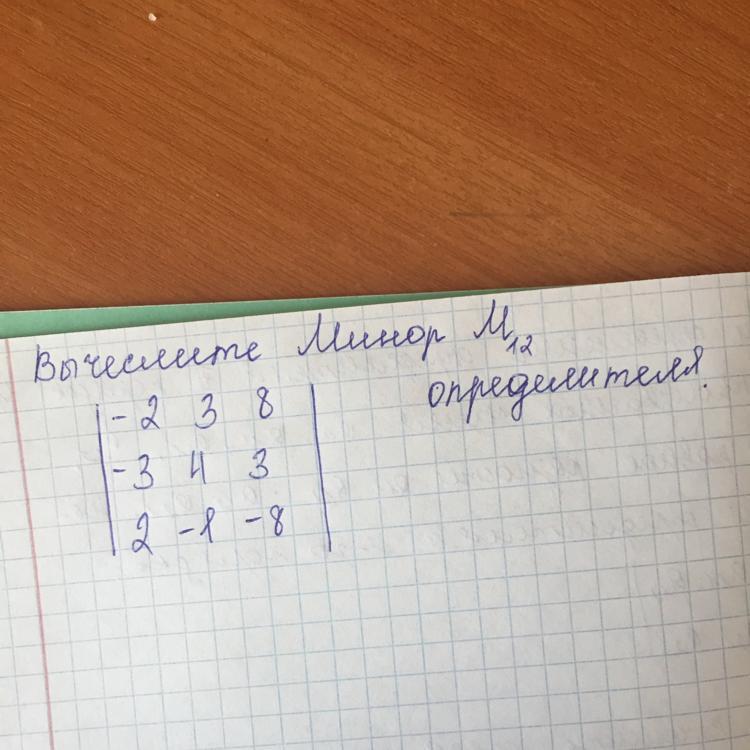 Вычеслите Минор М₁₂
определителя.
|-2 3 8|
|-3 4 3|
|2 -1 -8|